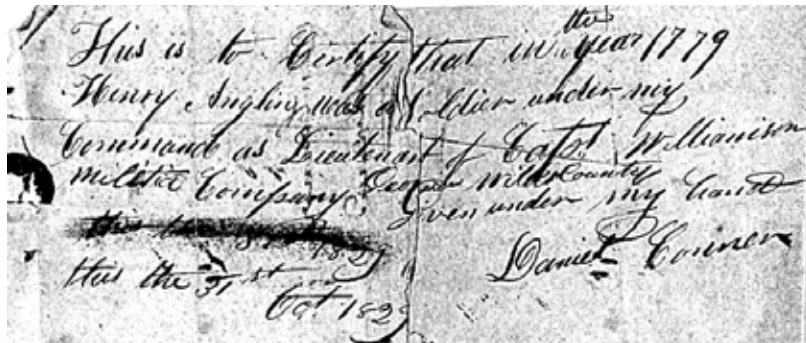 the
This is to Certify that in year 1779
Henry Anglin was a Soldier under my
Command as Lieutenant of Capt Williamson
Militia Company Georgia Wilks County
Given under my hand
this the 1829
this the 31st Daniel Conner
Oct 1829